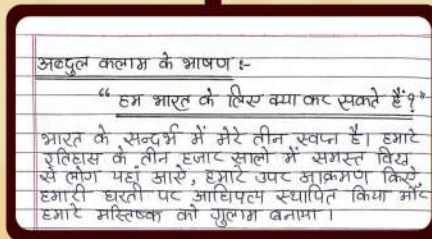 अब्दुल कलाम के भाषण :-
“ हम भारत के लिए क्या कर सकते हैं ? ”
भारत के सन्दर्भ में मेरे तीन स्वप्न है। हमारे
इतिहास के तीन हजार सालो में समस्त विश्व
से लोग यहां आए, हमारे उपर आक्रमण किए
हमारी धरती पर आधिपत्य स्थापित किया और
हमारे मस्तिष्क को गुलाम बनाया ।